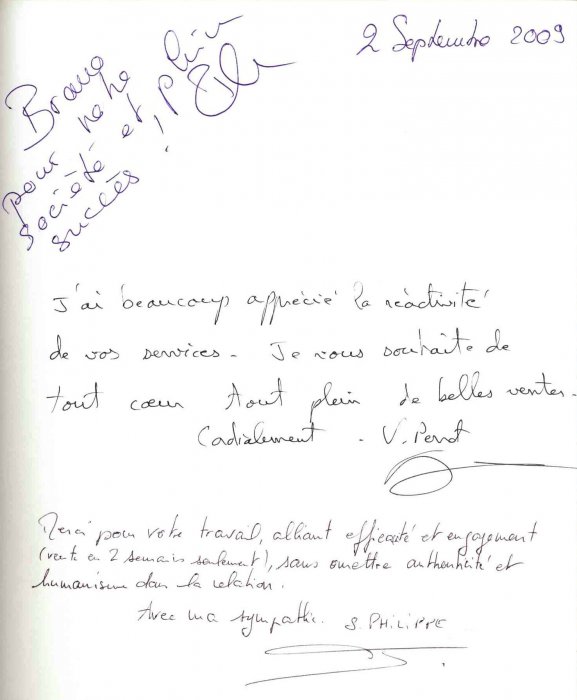 2 Septembre 2009
Bravo
pour votre
société et plein
succès !
J'ai beaucoup apprécié la réactivité
de vos services. Je vous souhaite de
tout cœur tout plein de belles ventes.
Cordialement - V. Perrot
Merci pour votre travail, alliant efficacité et engagement
(vente en 2 semaines seulement), sans omettre authenticité et
humanisme dans la relation.
Avec ma sympathie. S. PHILIPPE